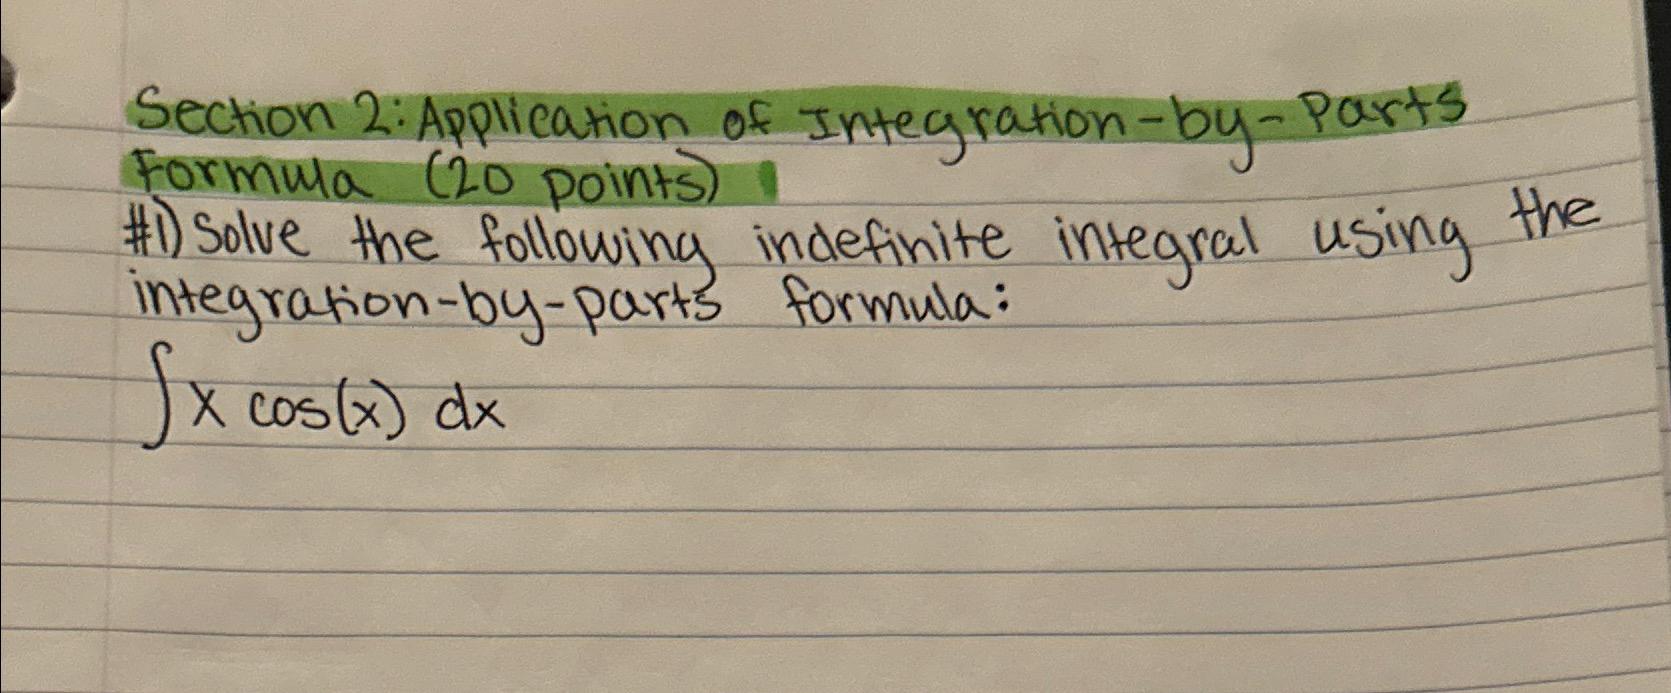 Section 2: Application of Integration-by-Parts
Formula (20 points)
#1) Solve the following indefinite integral using the
integration-by-parts formula:
∫x cos(x) dx